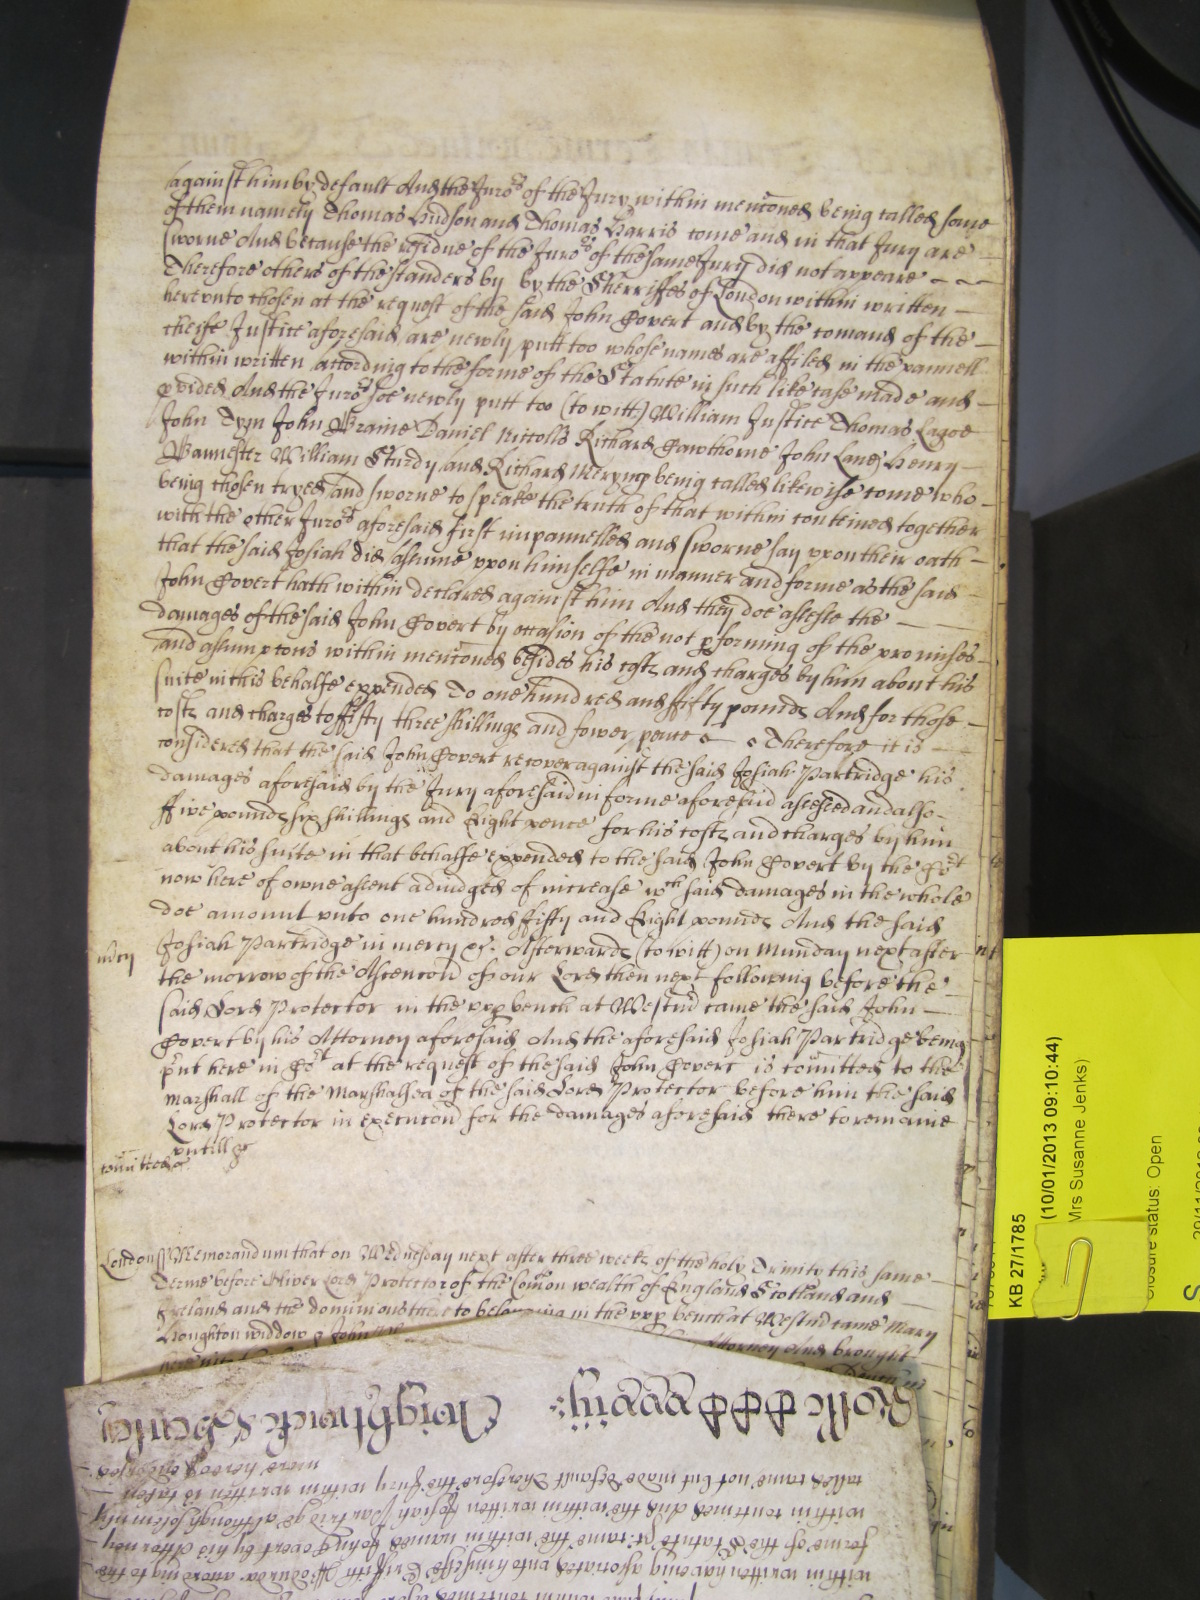 against him by default And the Juro^rs of the Jury within menconed being called some
of them namely Thomas Hudson and Thomas Harris come and in that Jury are
sworne And because the residue of the Juro^rs of the same Jury did not appeare
Therefore others of the standers by by the Sherriffes of London within written
hereunto chosen at the request of the said John Govert and by the comand of the
cheife Justice aforesaid are newly putt too whose names are affiled in the pannell
within written according to the forme of the Statute in such like case made and
pvided And the Juro^rs soe newly putt too (to witt) William Justice Thomas
John Tryn John Braine Daniel Niccolls Richard Gawthorne John Lane Henry
Bannester William Sturdy and Richard Meryng being called likewise come who
being chosen tryed and sworne to speake the truth of that within conteined together
with the other Juro^rs aforesaid first impannelled and sworne say upon their oath
that the said Josiah did assume upon himselfe in manner and forme as the said
John Govert hath within declared against him And they doe assesse the
damages of the said John Govert by occasion of the not pforming of the promises
and assumptons within menconed besides his costs and charges by him about his
suite in this behalfe expended To one hundred and fifty pounds And for those
costs and charges to ffifty three shillings and fower pence Therefore it is
considered that the said John Govert recover against the said Josiah Partridge his
damages aforesaid by the Jury aforesaid in forme aforesaid assessed and also
ffive pounds six shillings and Eight pence for his costs and charges by him
about his suite in that behalfe expended to the said John Govert by the Co^rt
now here of owne assent adiudged of increase w^ch said damages in the whole
doe amount unto one hundred fifty and Eight pounds And the said
mercy Josiah Partridge in mercy &c. Afterwards (to witt) on Munday next after
the morrow of the Ascencon of our Lord then next following before the
said Lord Protector in the upp bench at Westm̃ came the said John
Govert by his Attorney aforesaid And the aforesaid Josiah Partridge being
p^rsent here in Co^rt at the request of the said John Govert is comitted to the
Marshall of the Marshalsea of the said Lord Protector before him the said
Lord Protector in execucon for the damages aforesaid there to remaine
untill &c
comitted
London ss Memorandum that on Wednesday next after three weeks of the holy Trinity this same
Terme before Oliver Lord Protector of the Comon wealth of England Scotland and
Ireland and the dominions there to belonging in the upp bench at Westm̃ came Mary
Houghton widdow John Attorney And brought
here
Rolle
Cheightwick & Hanley
were hereof
called came not but made default Therefore the Jury within written is taken
within conteined And the within written Josiah Partridge although solemnly
forme of the Statute &c came the within named John Govert by his Attorney
within written having associated unto himselfe Griffith Bodurda according to the
KB 27/1785
(10/01/2013 09:10:44)
Mrs Susanne Jenks)
Closure status: Open